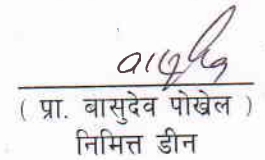 ( प्रा. बासुदेव पोखेल )
निमित्त डीन